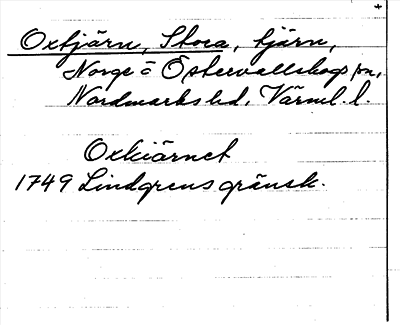 Oxtjärn, Stora, tjärn,
Norge o Östervallskogs sn,
Nordmarks hd, Värml. l.
Oxkiärnet
1749 Lindgrens gränsk.